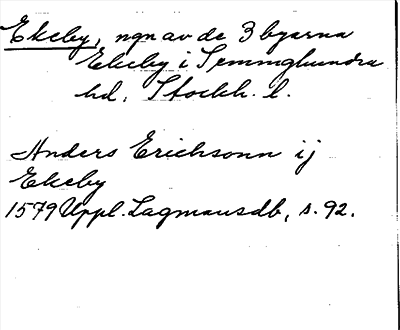 Ekeby, ngn av de 3 byarna
Ekeby i Semminghundra
hd, Stockh. l.
Anders Erichsonn ij
Ekeby
1579 Uppl. Lagmansdb, s. 92.